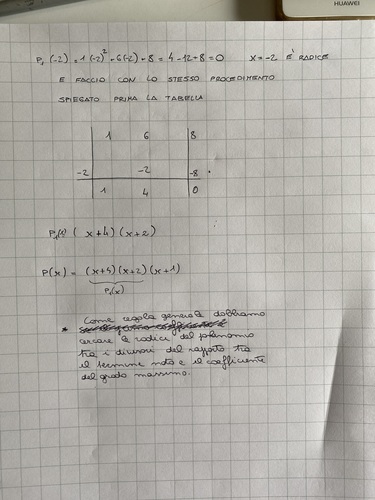 HUAWEI
P₁(-2) = 1(-2)² + 6(-2) + 8 = 4 - 12 + 8 = 0 x = -2 E' RADICE
E FACCIO CON LO STESSO PROCEDIMENTO
SPIEGATO PRIMA LA TABELLA
1 6 8
-2 -2 -8
1 4 0
P₁(x) (x+4)(x+2)
P(x) = (x+4)(x+2)(x+1)
P₁(x)
* Come regola generale dobbiamo
cercare le radici del polinomio
tra i divisori del rapporto tra
il termine noto e il coefficiente
del grado massimo.